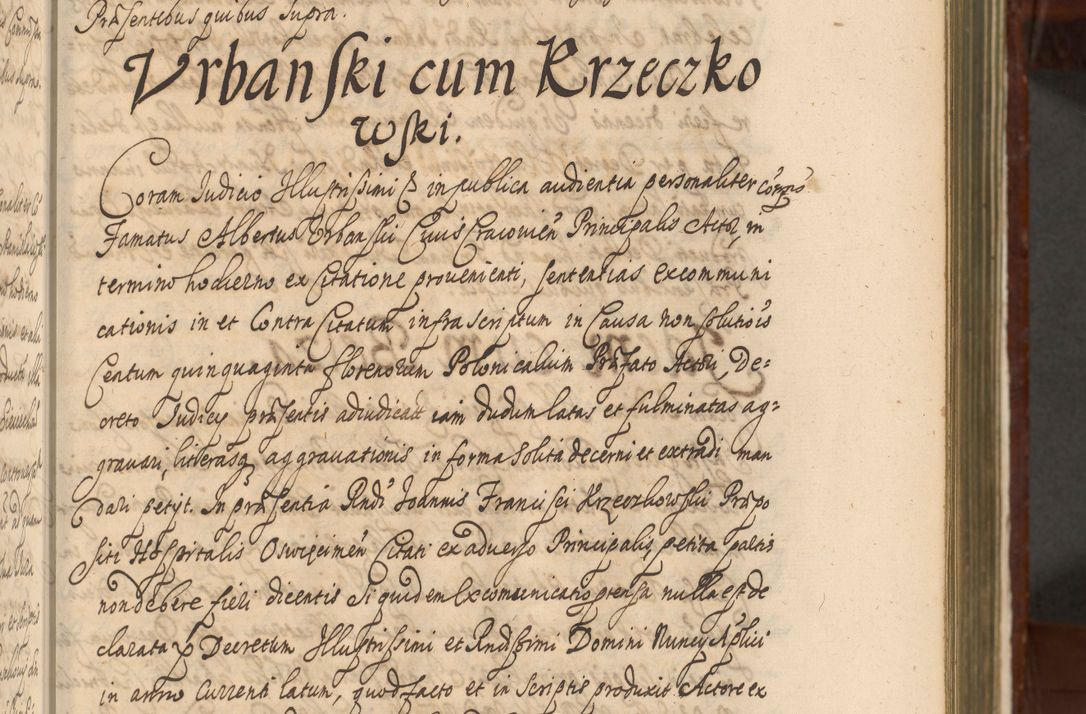 Præsentibus quibus supra.
Vrbanski cum Krzeczko
wski.
Coram Iudicio Illustrissimi &c in publica audientia personaliter compns
Famatus Albertus Vrbanski Civis Cracovien Principalis Actor, in
termino hodierno ex Citatione provenienti, sententias excommuni
cationis in et Contra Citatum infrascriptum in Causa non solutiois
Centum quinquaginta florenorum Polonicalium Præfato Actori, De=
creto Iudicij præsentis adiudicat iam dudum latas et fulminatas ag=
gravari, litterasq aggravationis in forma solita decerni et extradi man
dari petijt. In præsentia Rndi Joannis Francisci Krzeczkowski Præpo
siti Hospitalis Oswiecimen Citati ex adverso Principalis petita partis
non debere fieri dicentis Siquidem Excomunicatio prensa nulla est de
clarata p Decretum Illustrissimi et Rndissimi Domini Nuncij Aplici
in anno Currenti latum, quod facto et in scriptis produxit Actore ex